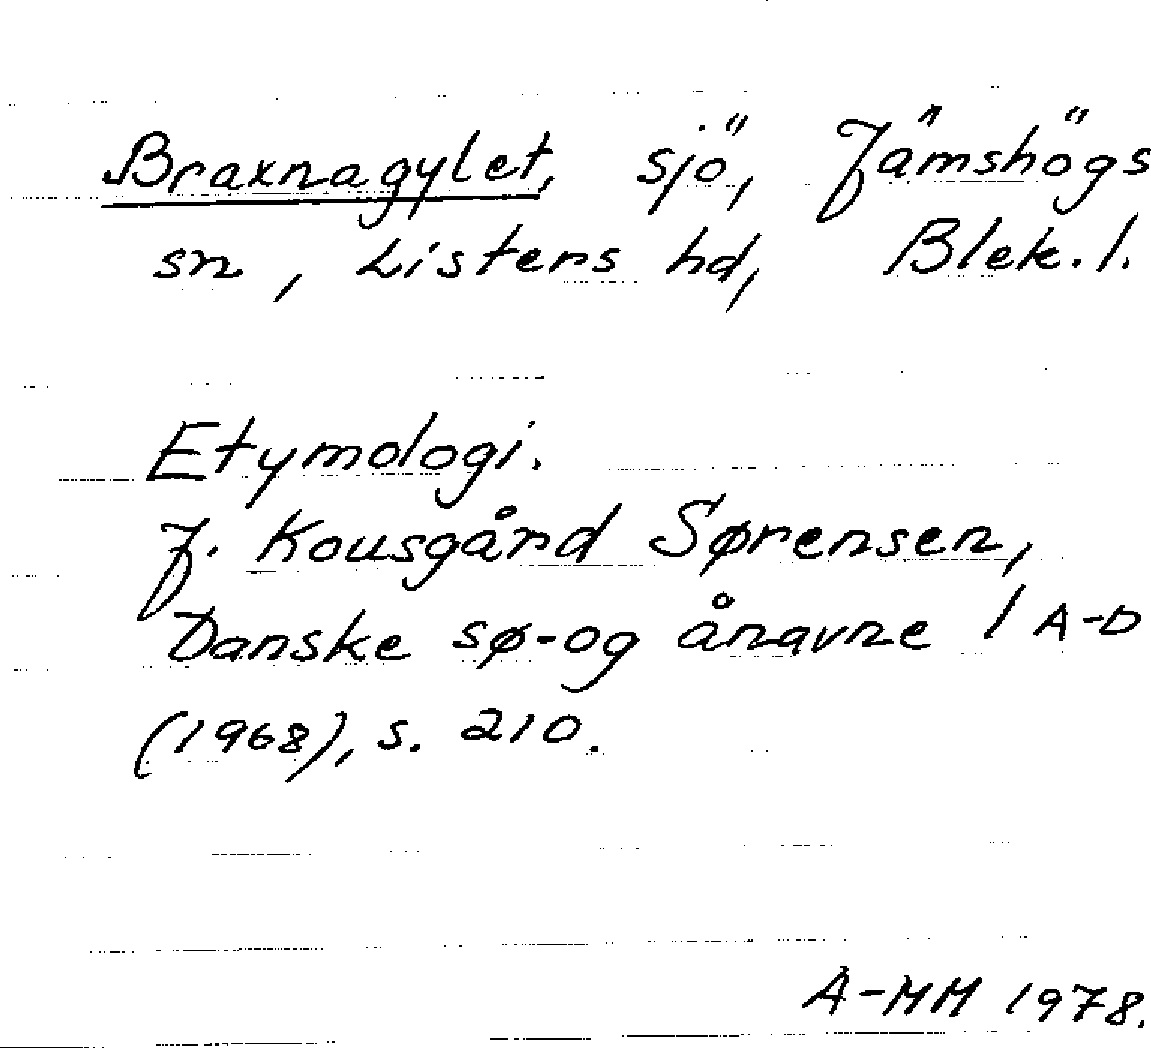 Braxnagylet, sjö, Jämshögs
sn, Listers hd, Blek. l.
Etymologi.
J. Kousgård Sørensen,
Danske sø- og ånavne I A-D
(1968), s. 210.
A-MM 1978.